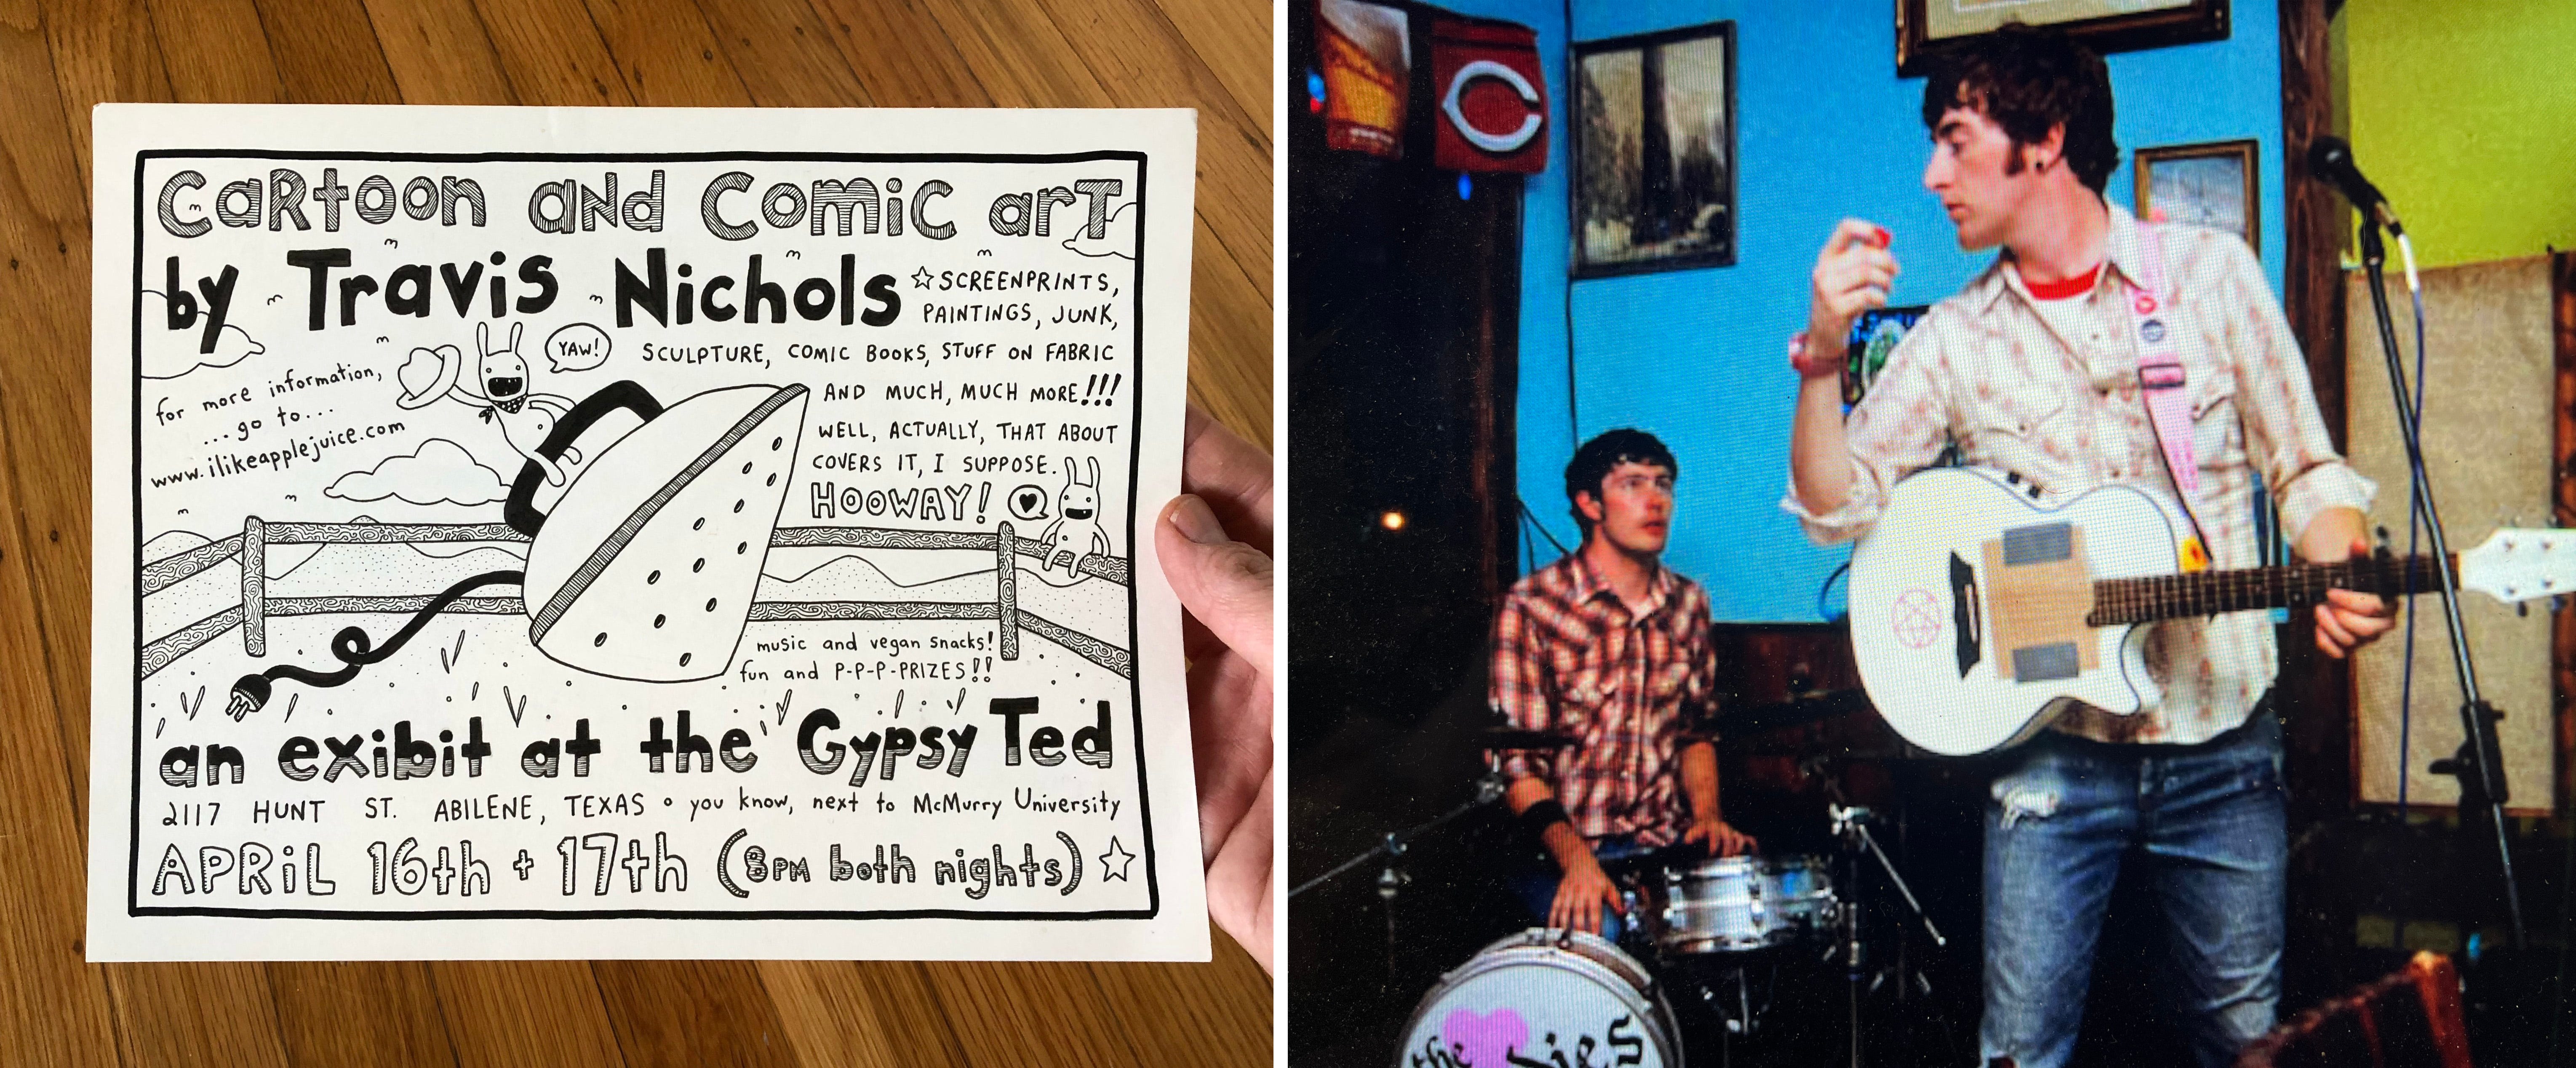 CaRtoon aNd ComiC arT
by Travis Nichols
☆ SCREENPRINTS,
PAINTINGS, JUNK,
SCULPTURE, COMIC BOOKS, STUFF ON FABRIC
AND MUCH, MUCH MORE!!!
WELL, ACTUALLY, THAT ABOUT
COVERS IT, I SUPPOSE.
HOOWAY!
YAW!
for more information,
...go to...
www.ilikeapplejuice.com
music and vegan snacks!
fun and P-P-P-PRIZES!!
an exibit at the Gypsy Ted
2117 HUNT ST. ABILENE, TEXAS ° you know, next to McMurry University
APRiL 16th + 17th (8PM both nights) ☆
C
the